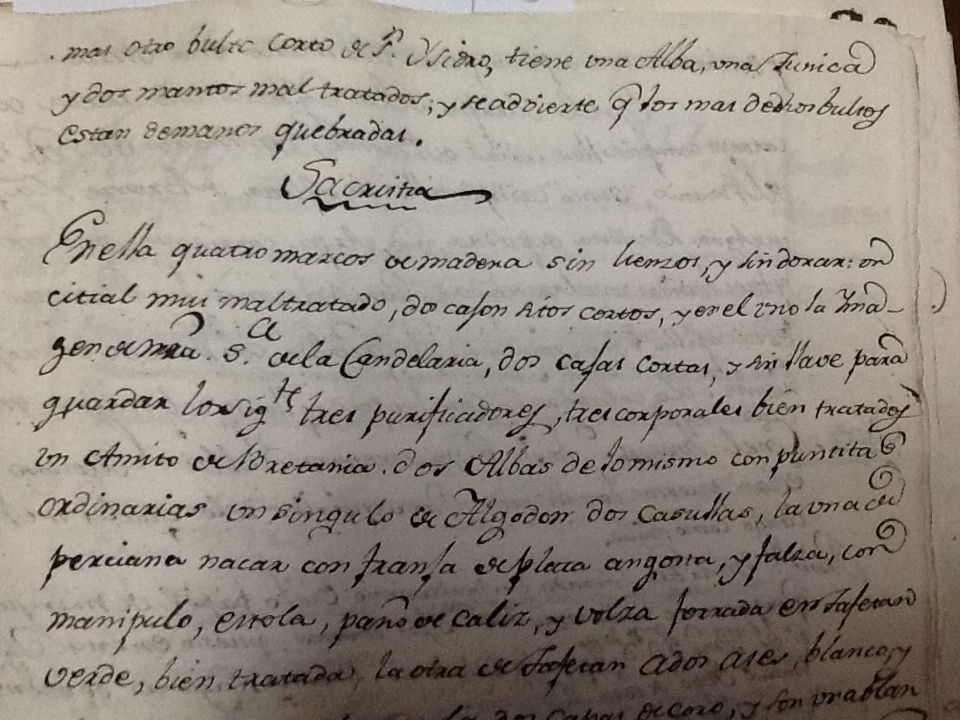 mas otro bulto corto de S. Ysidro, tiene una Alba, una Tunica
y dos mantos mal tratados, y se advierte q los mas de dhos bultos
estan de manos quebradas.
Sacristia
En ella quatro marcos de madera sin lienzos, y sin dorar: un
citial mui maltratado, dos cajon sitos cortos, y en el uno la Yma-
gen de nra. S.ra de la Candelaria, dos cajas cortas, y sin llave para
guardar los sig.tes tres purificadores, tres corporales bien tratados
un Amito de Bretania. dos Albas de lo mismo con puntitas
ordinarias un singulo de Algodon dos casullas, la una de
perciana nacar con franja de plata angosta, y falza, con
manipulo, estola, paño de caliz, y volza forrada en tafetan
verde, bien tratada, la otra de tafetan ados ases, blanco, y
dos capas de coro, y son una blan